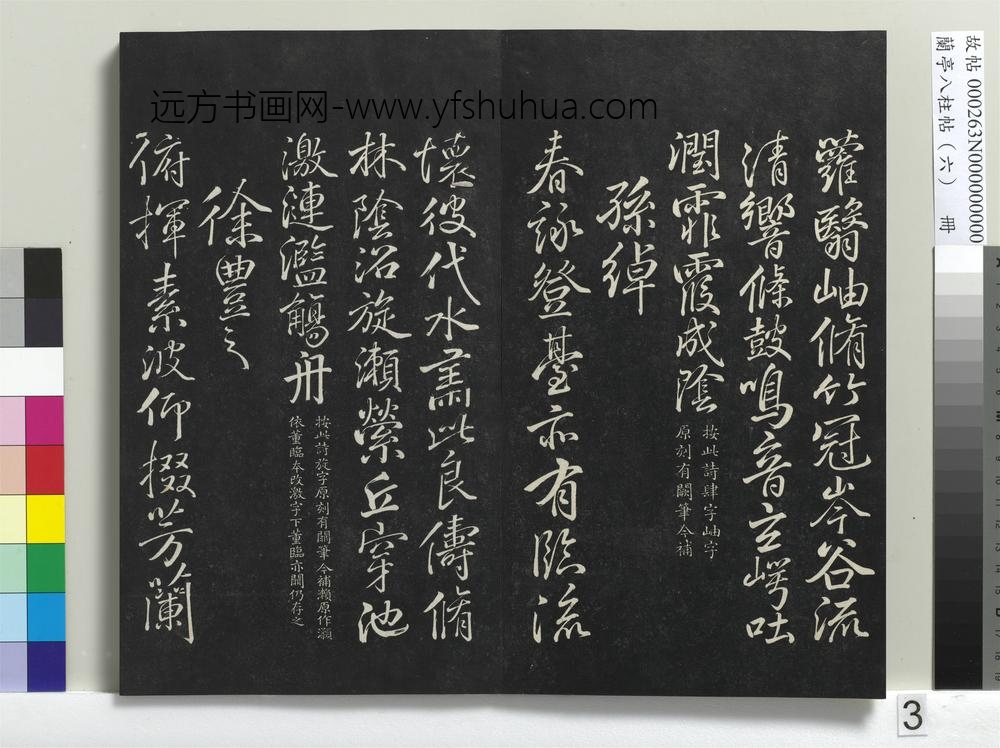 蘿翳岫脩竹冠岑谷流
清響條鼓鳴音玄崿吐
潤霏霧成陰
按此詩肆字岫字
原刻有闕筆今補
孫綽
春詠登臺亦有臨流
懷彼伐木肅此良儔脩
林陰沼旋瀨縈丘穿池
激漣濫觴舟
按此詩旋字原刻有闕筆今補瀨原作灝
依董臨本改激字下董臨亦闕仍存之
徐豐之
俯揮素波仰掇芳蘭
远方书画网-www.yfshuhua.com
故帖 000263N000000000
蘭亭八柱帖(六) 冊
3